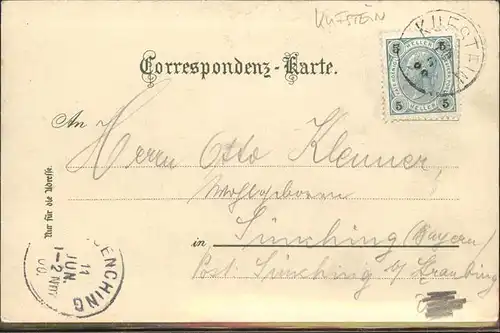 KUFSTEIN
KUFSTEIN
5 HELLER 5
5 HELLER 5
Correspondenz-Karte.
An
Herrn Otto Klenner,
Wohlgeboren
in Sünching (Bayern)
Post: Sünching b/ Straubing
Nur für die Adresse.
UENCHING
11
JUN.
1-2 NM
00.